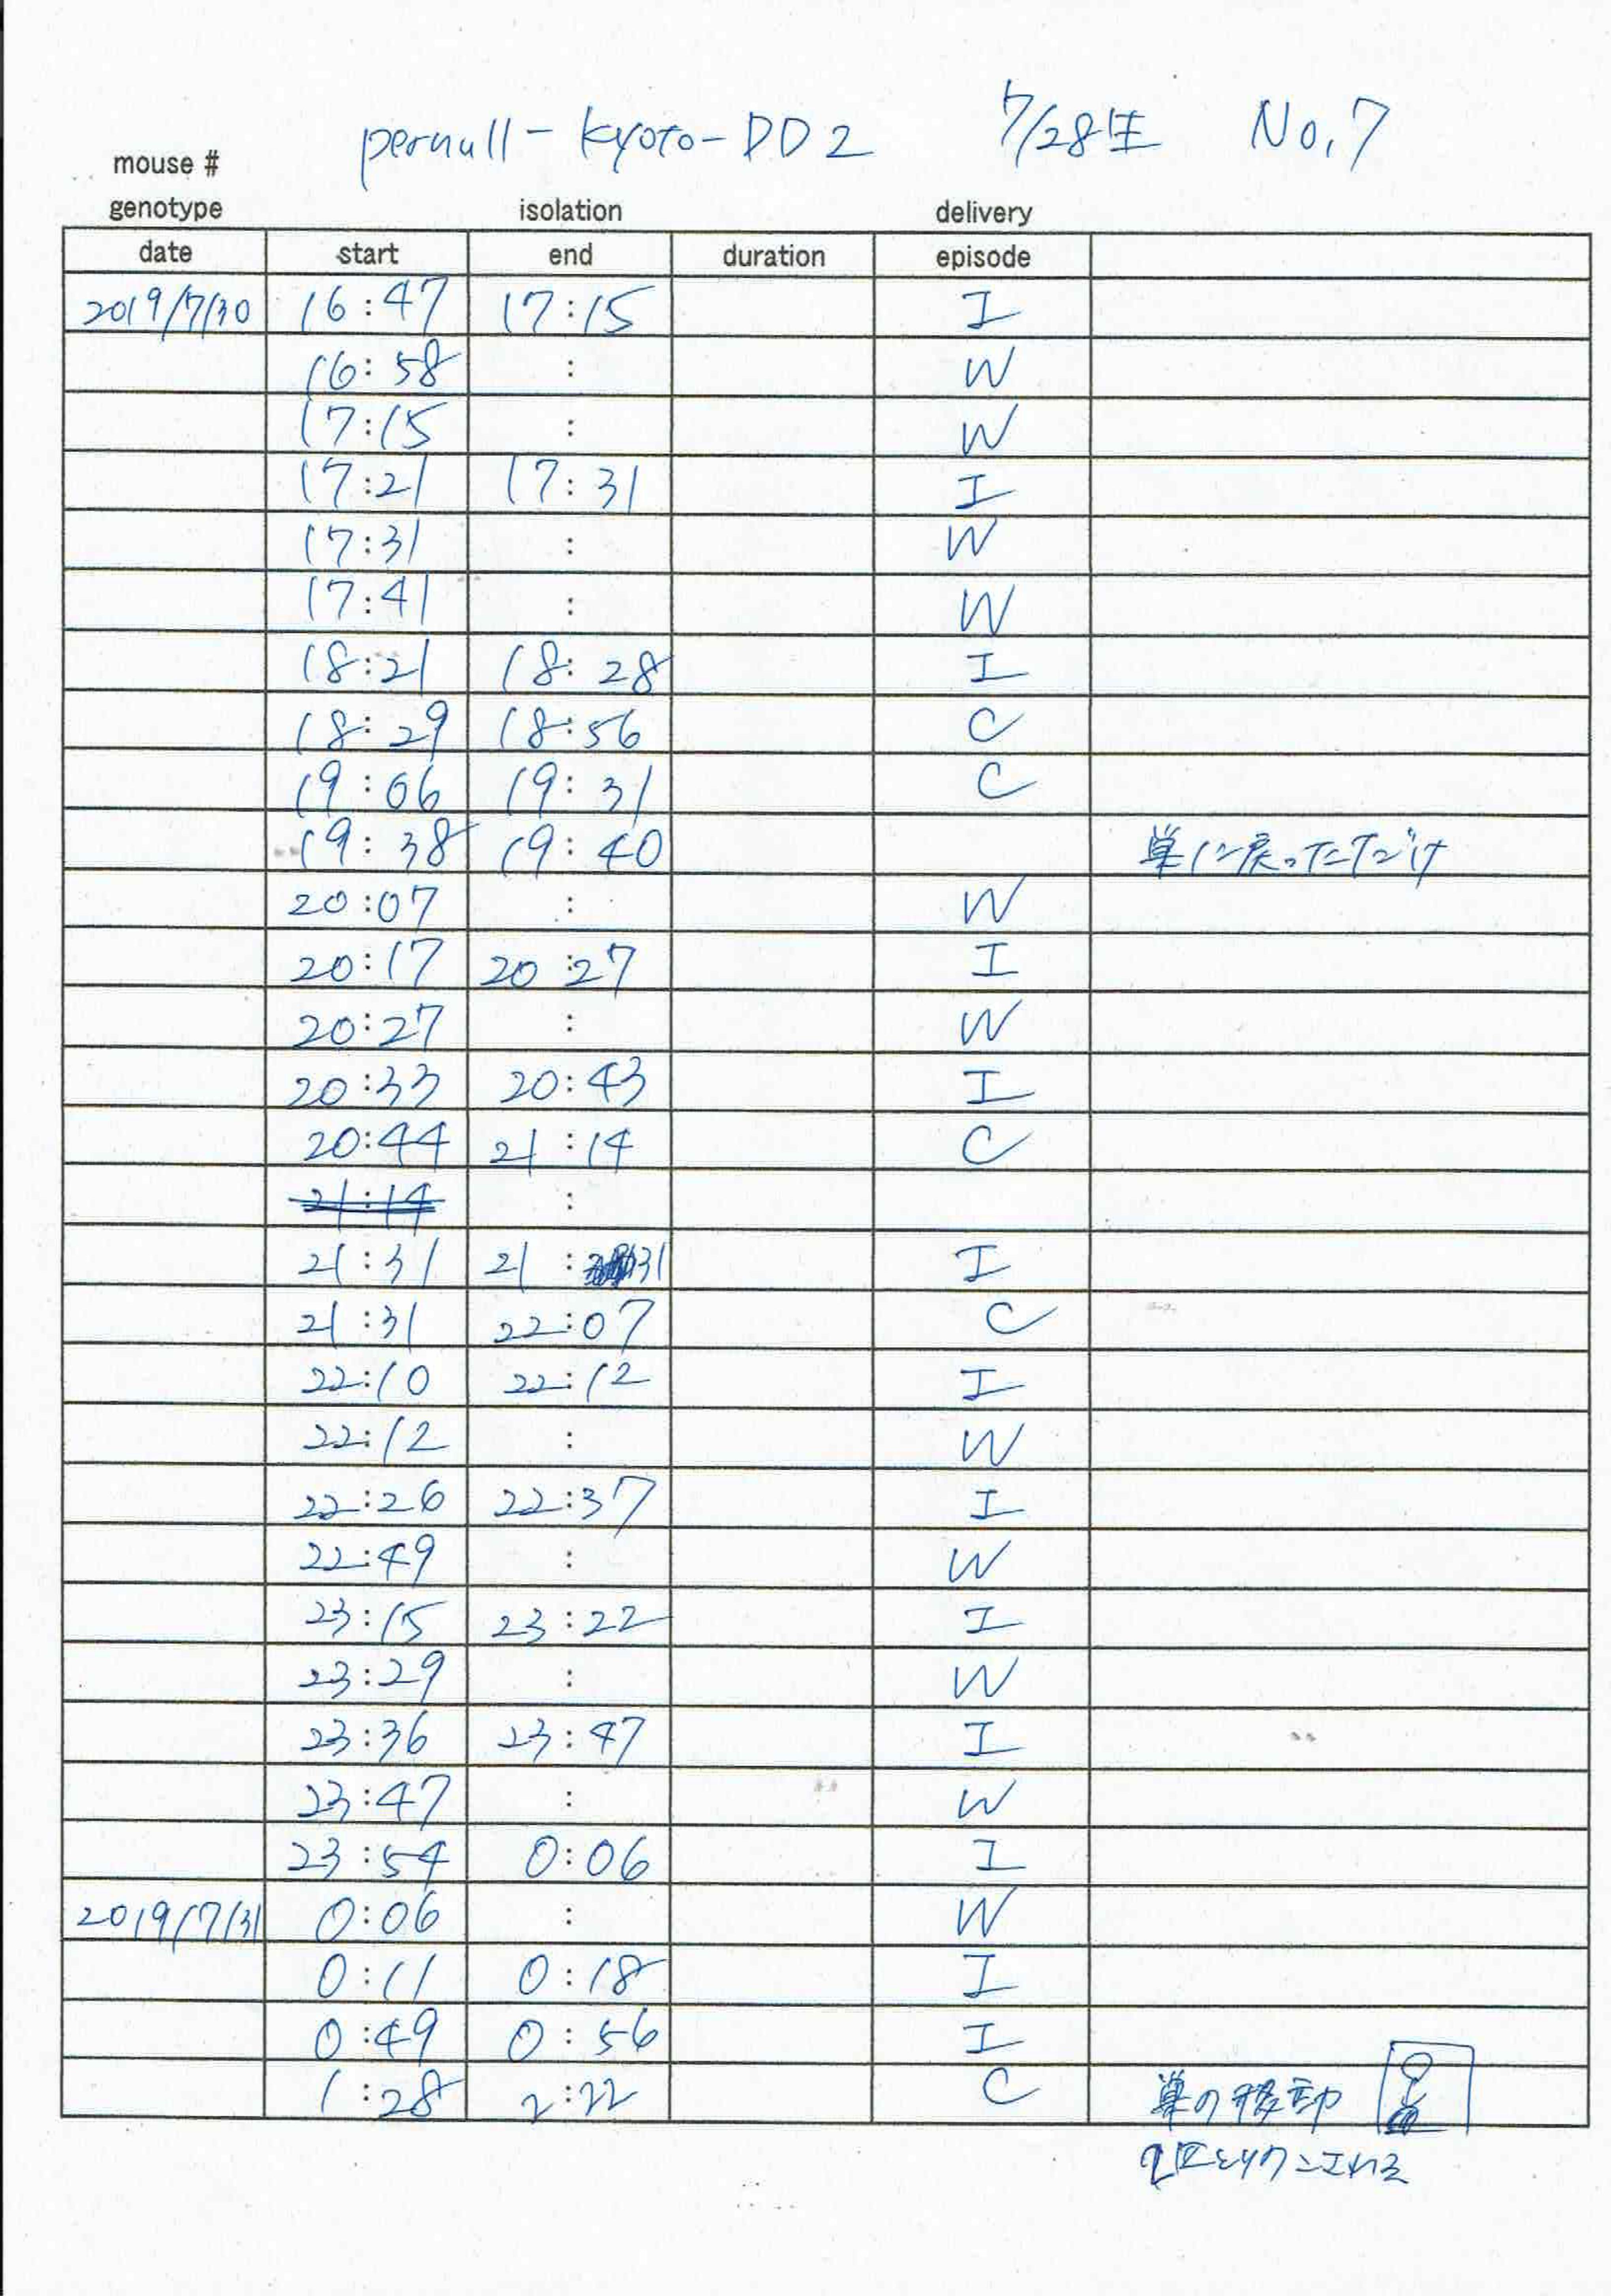 pernull-Kyoto-DD2 7/28生 No.7
mouse #
genotype isolation delivery
date start end duration episode
2019/7/30 16:47 17:15 I
16:58 : W
17:15 : W
17:21 17:31 I
17:31 : W
17:41 : W
18:21 18:28 I
18:29 18:56 C
19:06 19:31 C
19:38 19:40 巣に戻っただけ
20:07 : W
20:17 20:27 I
20:27 : W
20:33 20:43 I
20:44 21:14 C
21:14 :
21:31 21:31 I
21:31 22:07 C
22:10 22:12 I
22:12 : W
22:26 22:37 I
22:49 : W
23:15 23:22 I
23:29 : W
23:36 23:47 I
23:47 : W
23:54 0:06 I
2019/7/31 0:06 : W
0:11 0:18 I
0:49 0:56 I
1:28 2:22 C 巣の移動